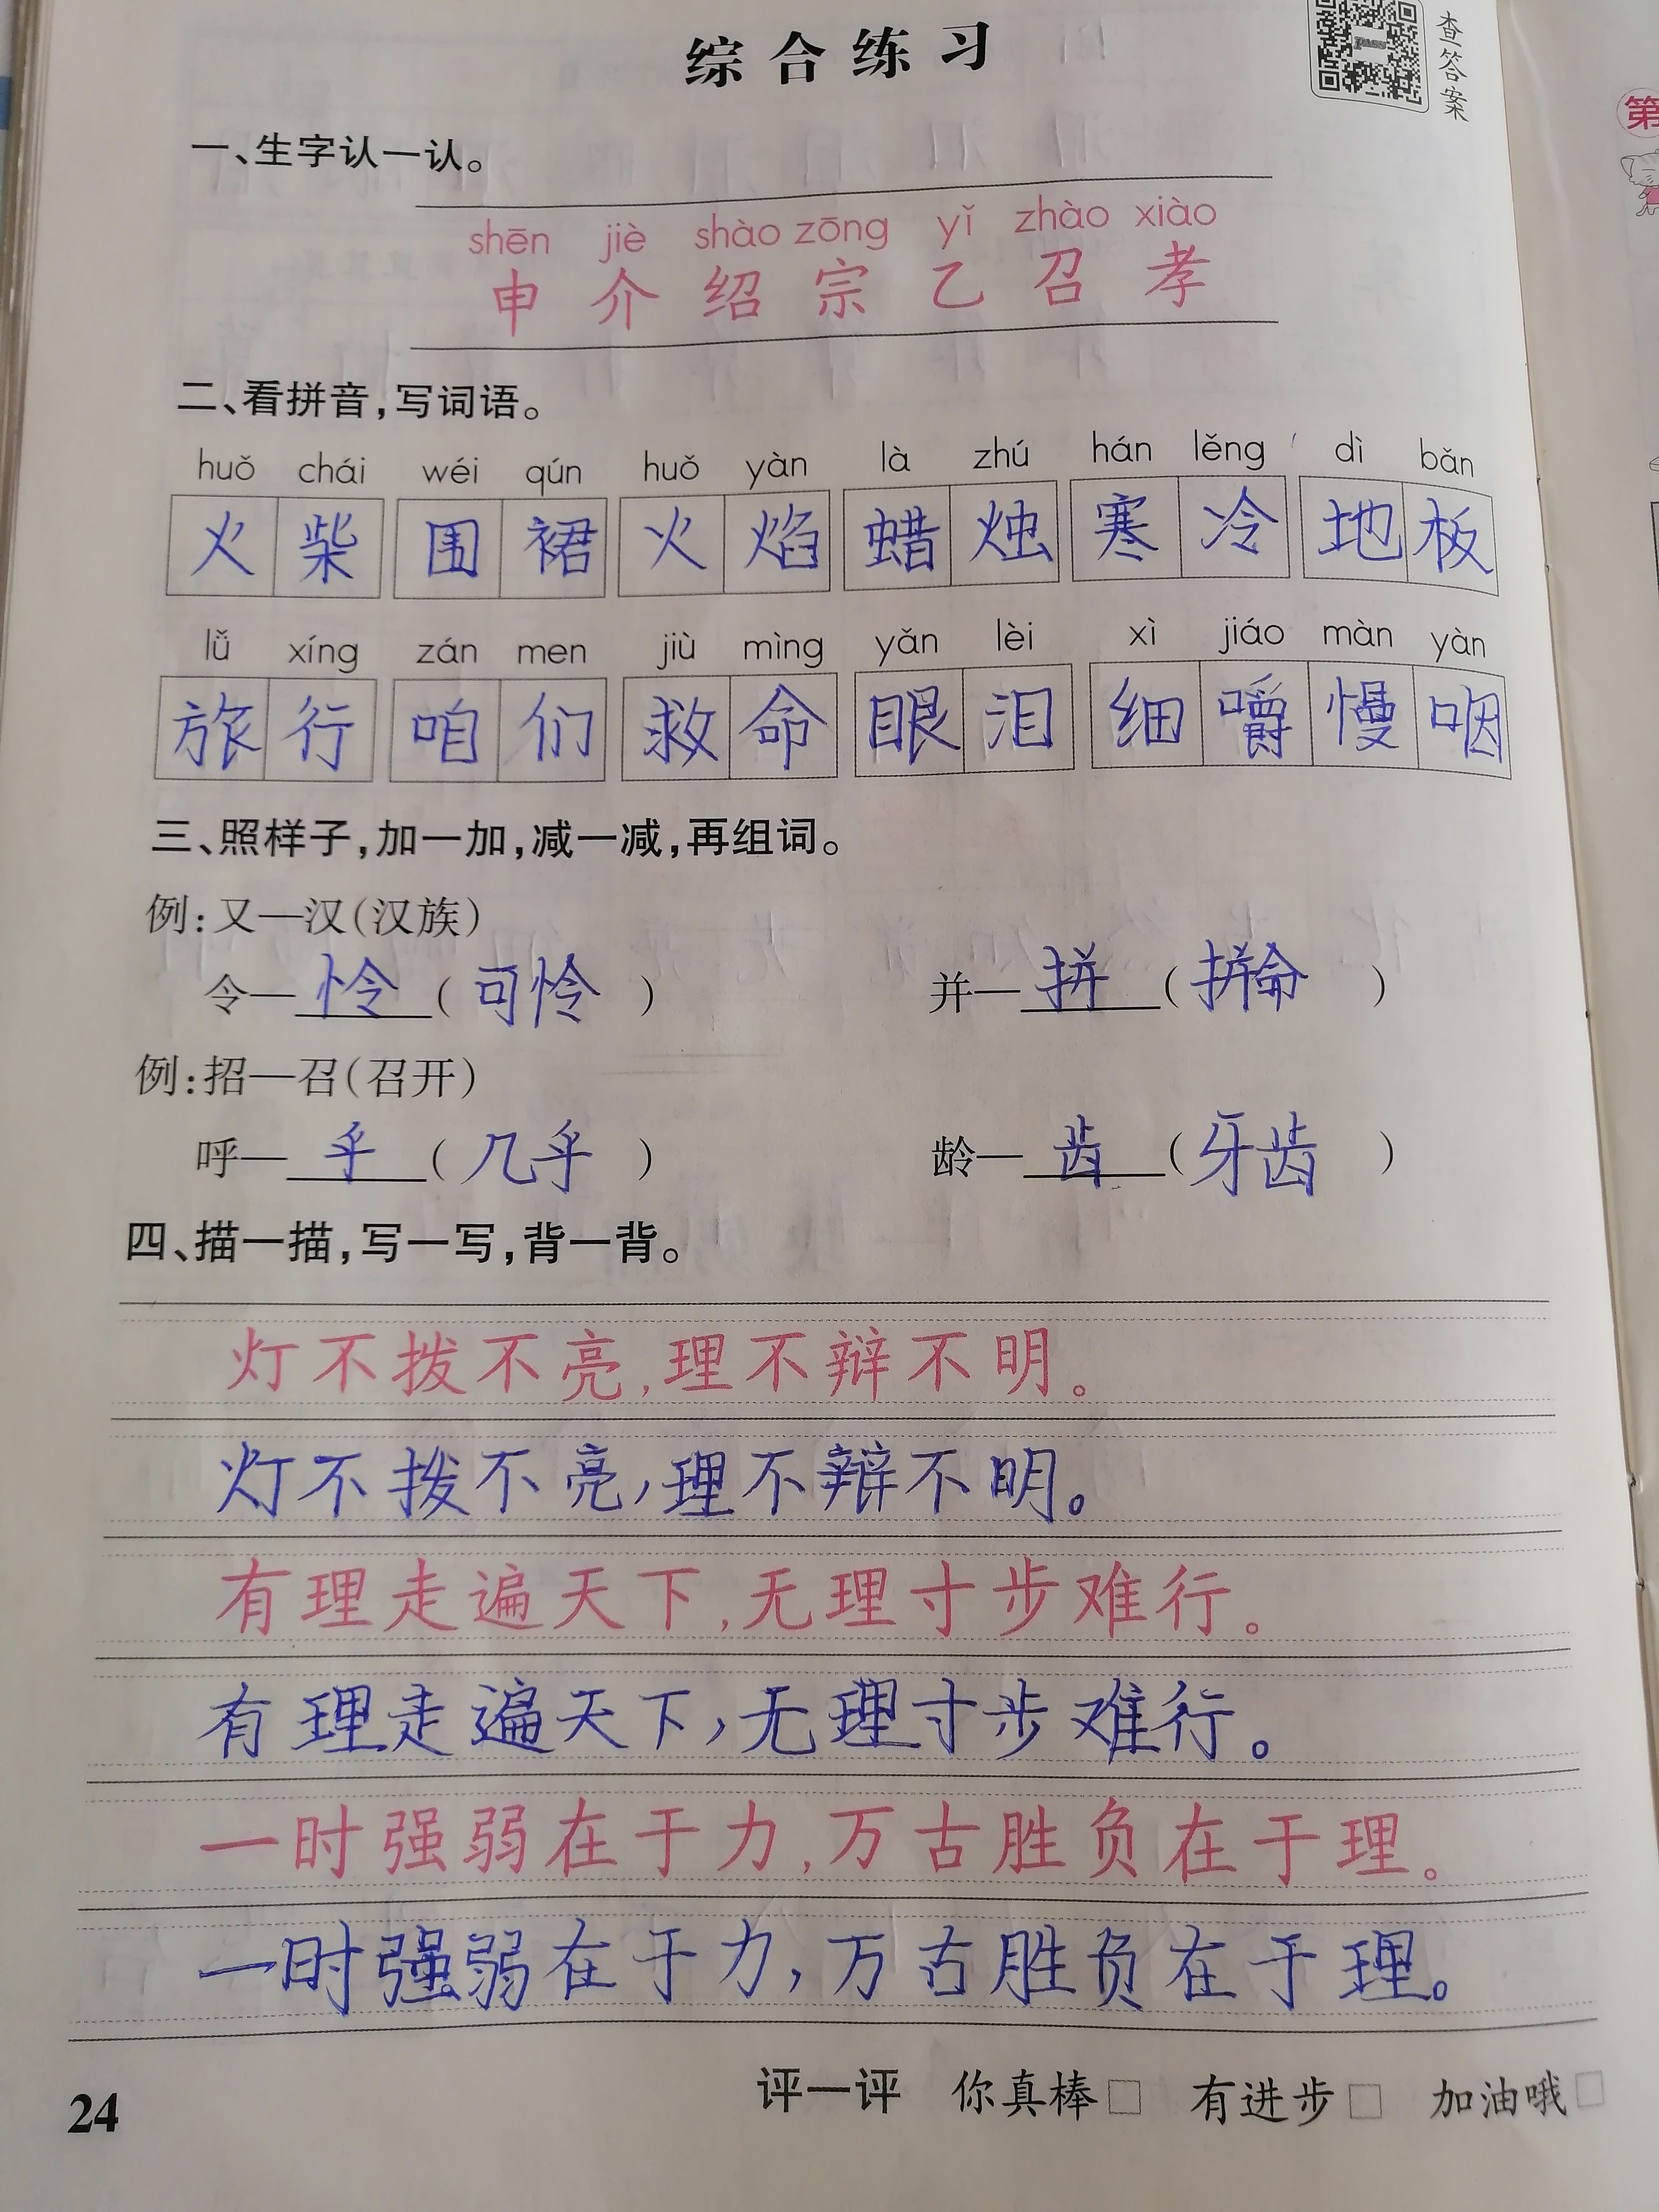 综合练习
查答案
第
一、生字认一认。
shēn jiè shào zōng yǐ zhào xiào
申 介 绍 宗 乙 召 孝
二、看拼音，写词语。
huǒ chái wéi qún huǒ yàn là zhú hán lěng dì bǎn
火柴 围裙 火焰 蜡烛 寒冷 地板
lǚ xíng zán men jiù mìng yǎn lèi xì jiáo màn yàn
旅行 咱们 救命 眼泪 细嚼慢咽
三、照样子，加一加，减一减，再组词。
例：又—汉（汉族）
令—怜（可怜） 并—拼（拼命）
例：招—召（召开）
呼—乎（几乎） 龄—齿（牙齿）
四、描一描，写一写，背一背。
灯不拨不亮，理不辩不明。
灯不拨不亮，理不辩不明。
有理走遍天下，无理寸步难行。
有理走遍天下，无理寸步难行。
一时强弱在于力，万古胜负在于理。
一时强弱在于力，万古胜负在于理。
评一评 你真棒□ 有进步□ 加油哦□
24